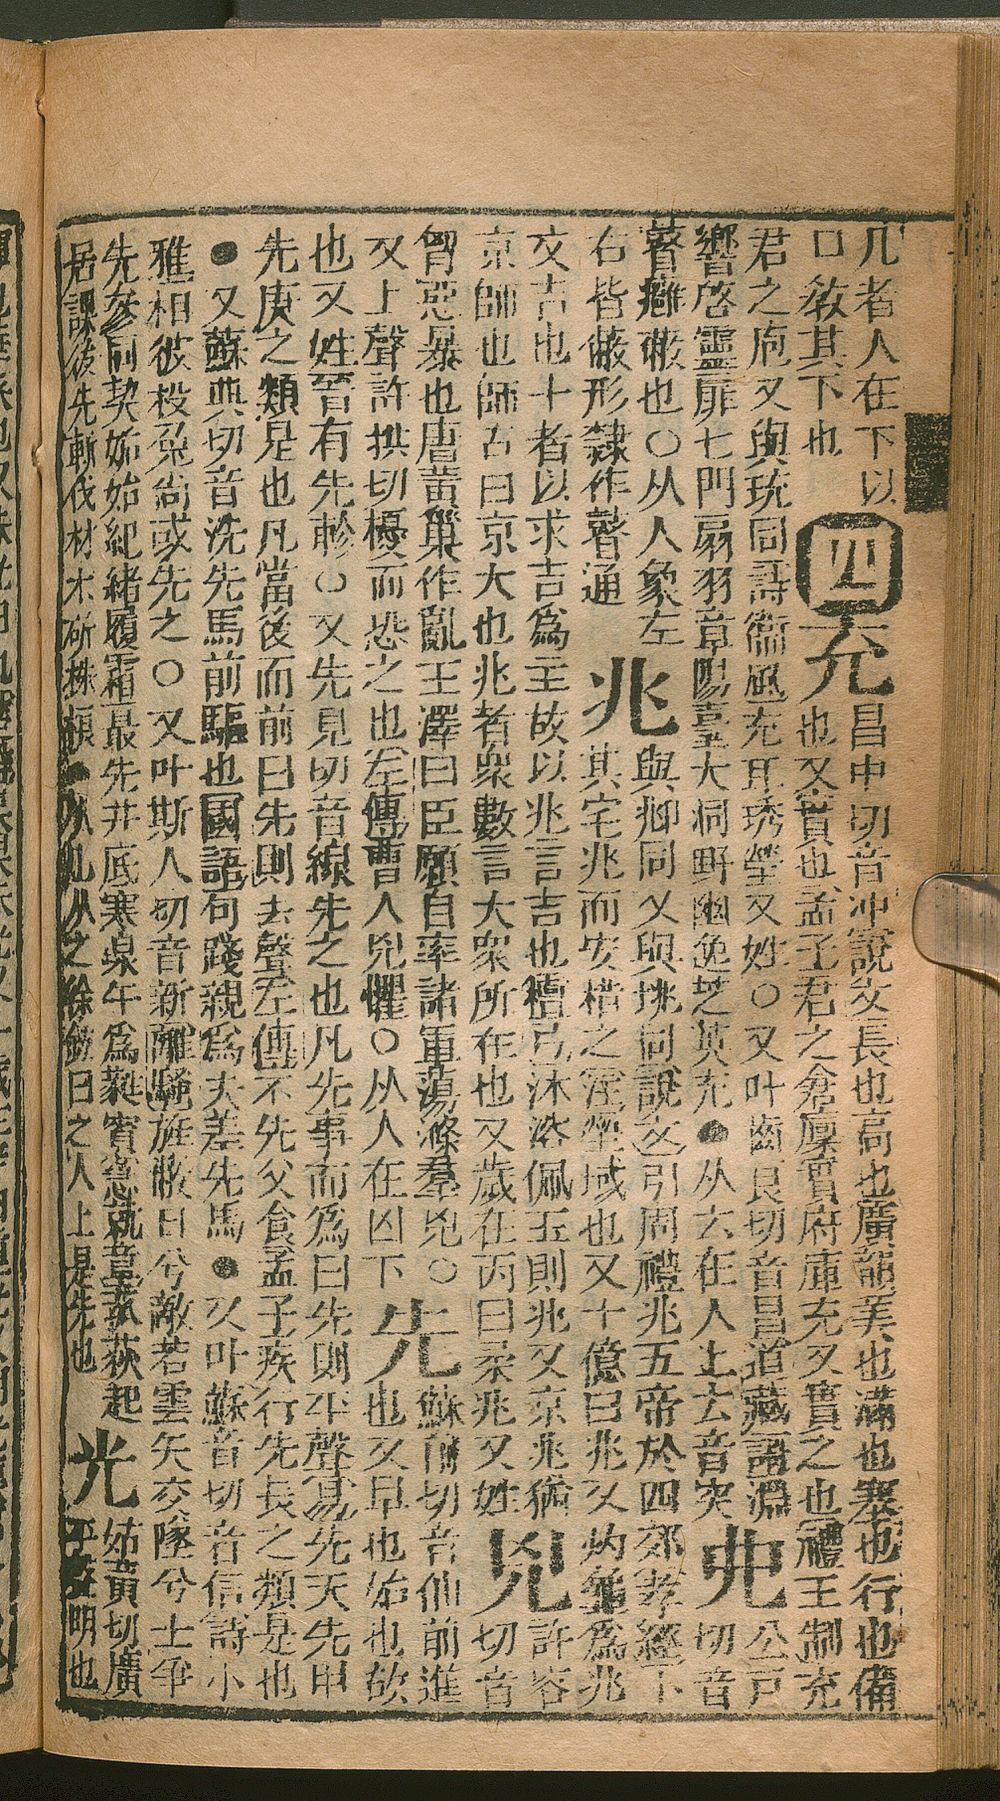 几者人在下以
口敎其下也
四
充
昌中切音冲說文長也高也廣韻美也滿也塞也行也備
也又實也孟子君之倉廩實府庫充又實之也禮王制充
君之庖又與珫同詩衞風充耳琇瑩又姓○又叶齒良切音昌道藏謌淵
響啓靈扉七門扇羽章陽臺大洞野幽逸芝英充●从𠫓在人上𠫓音突
𠑹
公戸
切音
瞽廱蔽也○从人象左
右皆蔽形隸作瞽通
兆
與𠧞同又與挑同說文引周禮兆五帝於四郊孝經卜
其宅兆而安措之塋域也又十億曰兆又灼龜爲兆
文吉也十者以求吉爲主故以兆言吉也檀弓沐浴佩玉則兆又京兆猶
京師也師古曰京大也兆者衆數言大衆所在也又歲在丙曰柔兆又姓
兇
許容
切音
胷惡暴也唐黃巢作亂王澤曰臣願自率諸軍蕩滌羣兇○
又上聲許拱切擾而恐之也左傳曹人兇懼○从人在凶下
先
蘇前切音仙前進
也又早也始也故
也又姓晉有先軫○又先見切音線先之也凡先事而爲曰先則平聲易先天先甲
先庚之類是也凡當後而前曰先則去聲左傳不先父食孟子疾行先長之類是也
●又蘇典切音洗先馬前驅也國語句踐親爲夫差先馬●又叶蘇音切音信詩小
雅相彼投兔尚或先之○又叶斯人切音新離騷旌蔽日兮敵若雲矢交墜兮士爭
先參同契姤始紀緒履霜最先井底寒泉午爲蕤賓急就章萩起
居課後先斬伐材木斫株根●从儿从之徐鉉曰之人上是先也
光
姑黃切廣
平聲明也